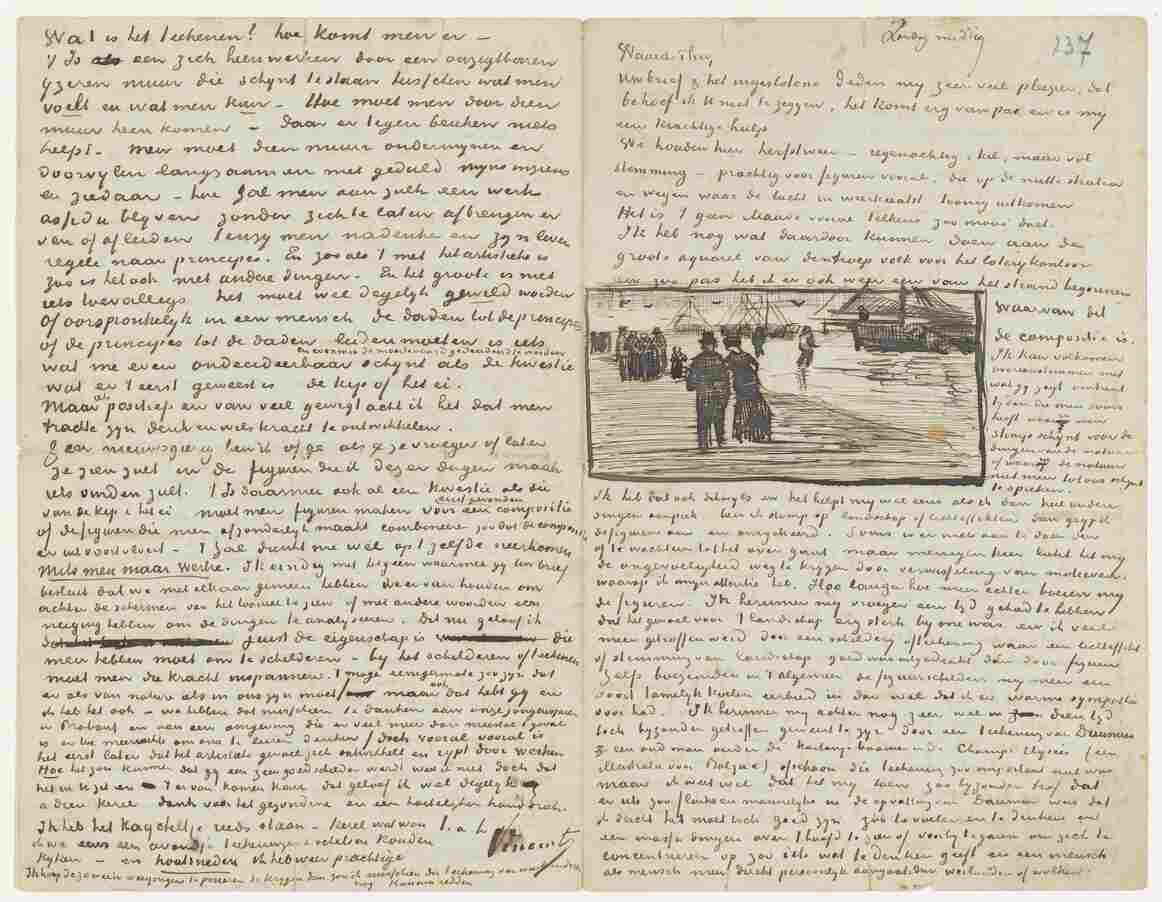 Wat is het teekenen? hoe komt men er –
't Is een zich heenwerken door een onzigtbaren
yzeren muur die schynt te staan tusschen wat men
voelt en wat men kan – Hoe moet men door dien
muur heen komen – daar er tegen beuken niets
helpt – men moet dien muur ondermynen en
doorvylen langzaam en met geduld myns inziens
en ziedaar – hoe zal men aan zulk een werk
assidu blyven zonder zich te laten afbrengen er
van of afleiden tenzy men nadenke en zyn leven
regele naar principes. En zoo als 't met het artistieke is
zoo is het ook met andere dingen. En het groote is niet
iets toevalligs het moet wel degelyk gewild worden
Of oorspronkelyk in een mensch de daden tot de principes
of de principes tot de daden leiden moeten is iets
en evenmin de moeite waard
wat me even ondecideerbaar schynt als de kwestie
wat er 't eerst geweest is de kip of het ei.
Maar als positief en van veel gewigt acht ik het dat men
trachte zyn denk en wilskracht te ontwikkelen.
Zeer nieuwsgierig ben ik of ge als ge vroeger of later
ze zien zult in de figuren die ik dezer dagen maak
iets vinden zult. 't Is daarmee ook al een kwestie als die
van de kip & het ei moet men figuren maken voor een eerst gevonden compositie
of de figuren die men afzonderlyk maakt combineeren zoo dat de compositie
er uit voortvloeit – 't Zal dunkt me wel op 't zelfde neerkomen
Mits men maar werke. Ik eindig met hetgeen waarmee gy Uw brief
besluit dat we met elkaar gemeen hebben dat we er van houden om
achter de schermen van het tooneel te zien of met andere woorden een
neiging hebben om de dingen te analyseren. Dit nu geloof ik
juist de eigenschap is die
men hebben moet om te schilderen – by het schilderen of teekenen
moet men die kracht inspannen. 't moge eenigermate zoo zyn dat
er als van nature iets in ons zyn moet maar ook dat hebt gy en
ik heb het ook – we hebben dat misschien te danken aan onze jongensjaren
in Braband en aan een omgeving die er veel meer dan meestal geval
is er toe meewerkte om ons te leeren denken / doch vooral vooral is
het eerst later dat het artistieke gevoel zich ontwikkelt en rypt door werken
Hoe het zou kunnen dat gy een zeer goed schilder werdt weet ik niet doch dat
het in U zit en er van komen kan dat geloof ik wel degelyk
adieu kerel dank voor het gezondene en een hartelyken handdruk
Ik heb het kacheltje reeds staan – kerel wat wou ik
dat we eens een avondje teekeningen & schetsen konden
kyken – en houtsneden ik heb weer prachtige
t. à t.
Vincent
Zondag middag
237
Waarde Theo,
Uw brief & het ingeslotene deden my zeer veel pleizier, dat
behoef ik U niet te zeggen, het komt erg van pas en is my
een krachtige hulp
We houden hier herfstweer – regenachtig, kil, maar vol
stemming – prachtig voor figuren vooral, die op de natte straten
en wegen waar de lucht in weerkaatst toonig uitkomen
Het is 't geen Mauve vooral telkens zoo mooi doet.
Ik heb nog wat daardoor kunnen doen aan de
groote aquarel van den troep volk voor het loterykantoor
en zoo pas heb ik er ook weer een van het strand begonnen
waarvan dit
de compositie is.
Ik kan volkomen
overeenstemmen met
wat gy zegt omtrent
tyden die men soms
heeft waarin men
stomp schynt voor de
dingen van de natuur
of waarin de natuur
niet meer tot ons schynt
te spreken.
Ik heb dat ook dikwyls en het helpt my wel eens als ik dan heel andere
dingen aanpak. Ben ik stomp op landschap of lichteffekten dan gryp ik
de figuren aan en omgekeerd. Soms is er niets aan te doen dan
af te wachten tot het over gaat maar menigen keer lukt het my
de ongevoeligheid weg te krygen door verwisseling van motieven.
waarop ik myn attentie heb. Hoe langer hoe meer echter boeien my
de figuren. Ik herinner my vroeger een tyd gehad te hebben
dat het gevoel voor 't landschap erg sterk by me was en ik veel
meer getroffen werd door een schildery of teekening waar een lichteffect
of stemming van landschap goed was uitgedrukt dan door figuren
Zelfs boezemden in 't algemeen de figuurschilders my meer een
soort tamelyk koelen eerbied in dan wel dat ik er warme sympathie
voor had. Ik herinner my echter nog zeer wel in dien tyd
toch byzonder getroffen geweest te zyn door een teekening van Daumier
een oud man onder de kastanjeboomen in de Champs Elysees (een
illustratie voor Balzac) ofschoon die teekening zoo important niet was
maar ik weet wel dat het my toen zoo byzonder trof dat
er iets zoo flinks en mannelyks in de opvatting van Daumier was dat
ik dacht het moet toch goed zyn zoo te voelen en te denken en
een massa dingen over 't hoofd te zien of voorby te gaan om zich te
concentreren op zoo iets wat te denken geeft en een mensch
als mensch meer direkt persoonlyk aangaat dan weilanden of wolken.